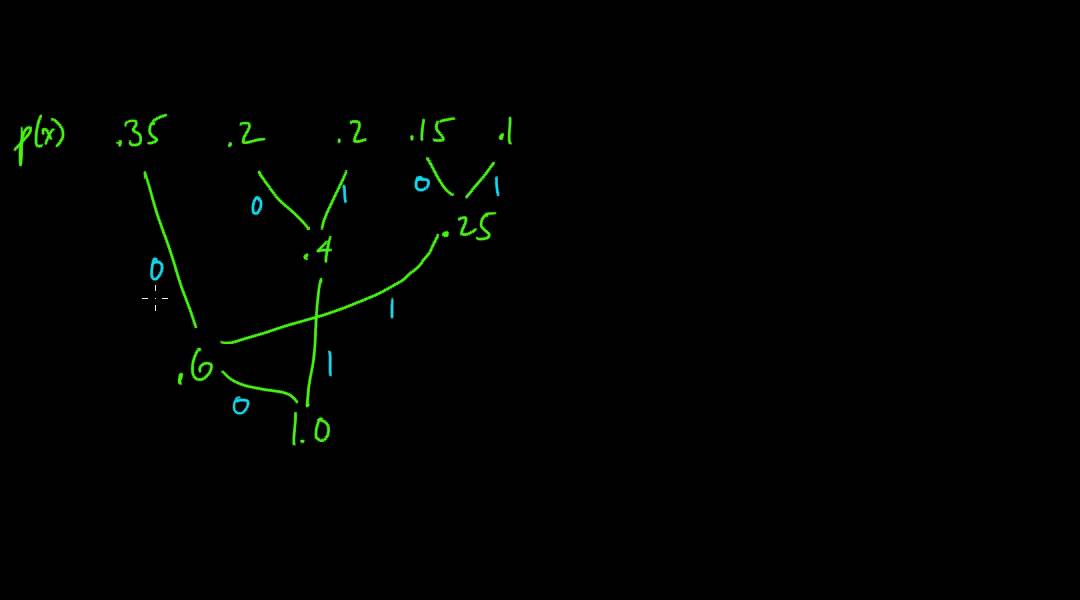 p(x) .35 .2 .2 .15 .1
0 1 0 1
.25
.4
0
1
.6 1
0
1.0